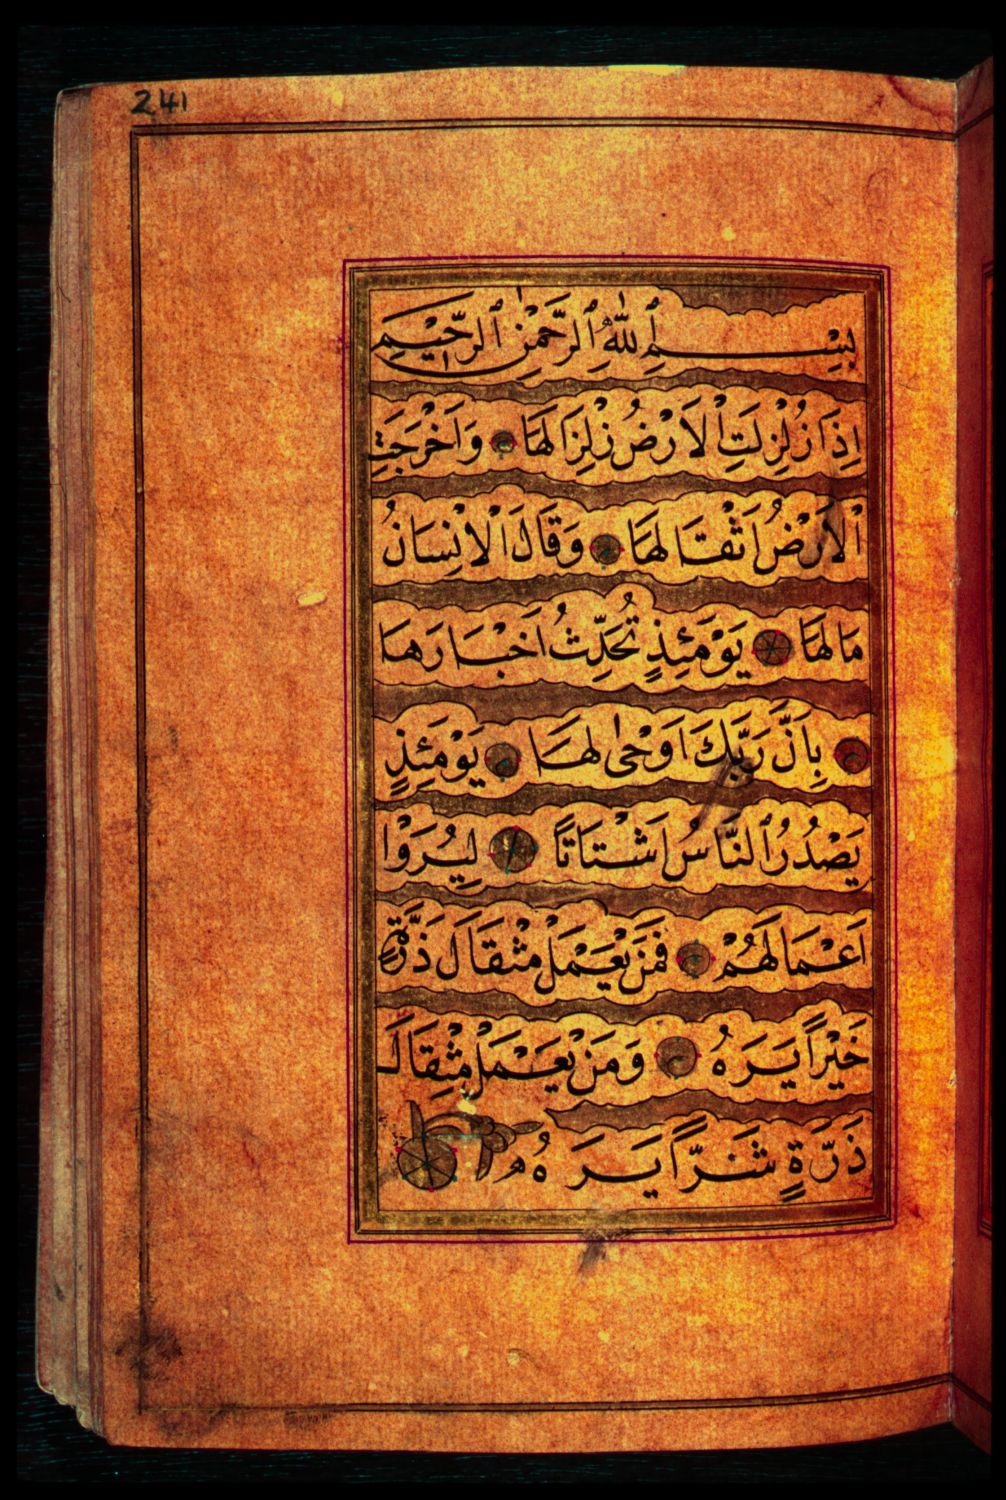 241
بِسْمِ ٱللّٰهِ ٱلرَّحْمٰنِ ٱلرَّحٖيمِ
اِذَا زُلْزِلَتِ ٱلْاَرْضُ زِلْزَالَهَا وَاَخْرَجَتِ
ٱلْاَرْضُ اَثْقَالَهَا وَقَالَ ٱلْاِنْسَانُ
مَالَهَا يَوْمَئِذٍ تُحَدِّثُ اَخْبَارَهَا
بِاَنَّ رَبَّكَ اَوْحٰى لَهَا يَوْمَئِذٍ
يَصْدُرُ ٱلنَّاسُ اَشْتَاتًا لِيُرَوْا
اَعْمَالَهُمْ فَمَنْ يَعْمَلْ مِثْقَالَ ذَرَّةٍ
خَيْرًا يَرَهُ وَمَنْ يَعْمَلْ مِثْقَالَ
ذَرَّةٍ شَرًّا يَرَهُ